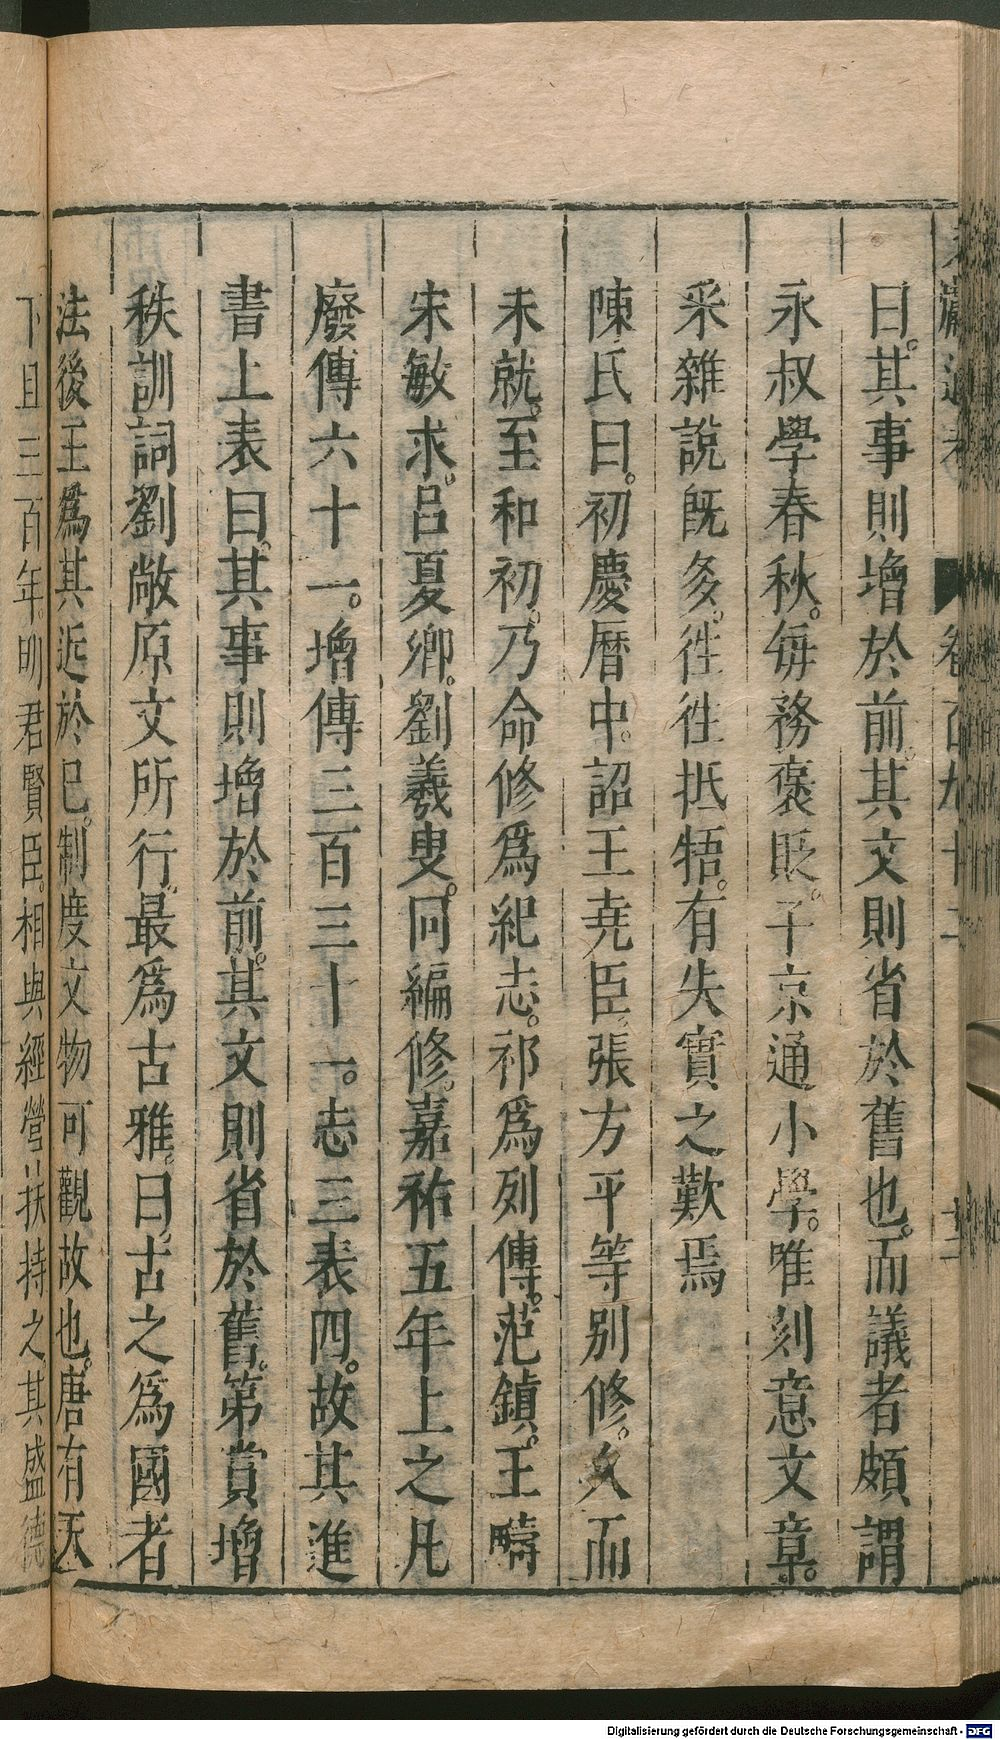 曰。其事則增於前。其文則省於舊也。而議者頗謂
永叔學春秋。每務褒貶。子京通小學。唯刻意文章。
采雜說既多。徃徃抵牾。有失實之歎焉
陳氏曰。初慶曆中。詔王堯臣。張方平等別修。久而
未就。至和初。乃命修爲紀志。祁爲列傳。范鎮。王疇
宋敏求。呂夏卿。劉羲叟。同編修。嘉祐五年上之凡
廢傳六十一。增傳三百三十一。志三表四。故其進
書上表曰。其事則增於前。其文則省於舊。第賞增
秩訓詞劉敞原文所行。最爲古雅。曰。古之爲國者
法後王爲其近於己。制度文物可觀故也。唐有天
下且三百年。明君賢臣。相與經營扶持之。其盛德
Digitalisierung gefördert durch die Deutsche Forschungsgemeinschaft - DFG